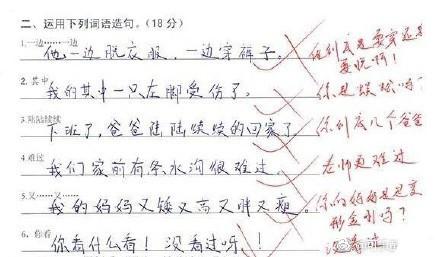 二、运用下列词语造句。(18分)
1.一边……一边
他一边脱衣服，一边穿裤子。
他到底是要穿还是要脱啊！
2.其中
我的其中一只左脚受伤了。
你是蜈蚣吗？
3.陆陆续续
下班了，爸爸陆陆续续的回家了。
你到底几个爸爸
4.难过
我们家前有条水沟很难过。
老师更难过
5.又……又……
我的妈妈又矮又高又胖又瘦。
你的妈妈是变形金刚吗？
6、你看
你看什么看！没看过呀！！
没看过